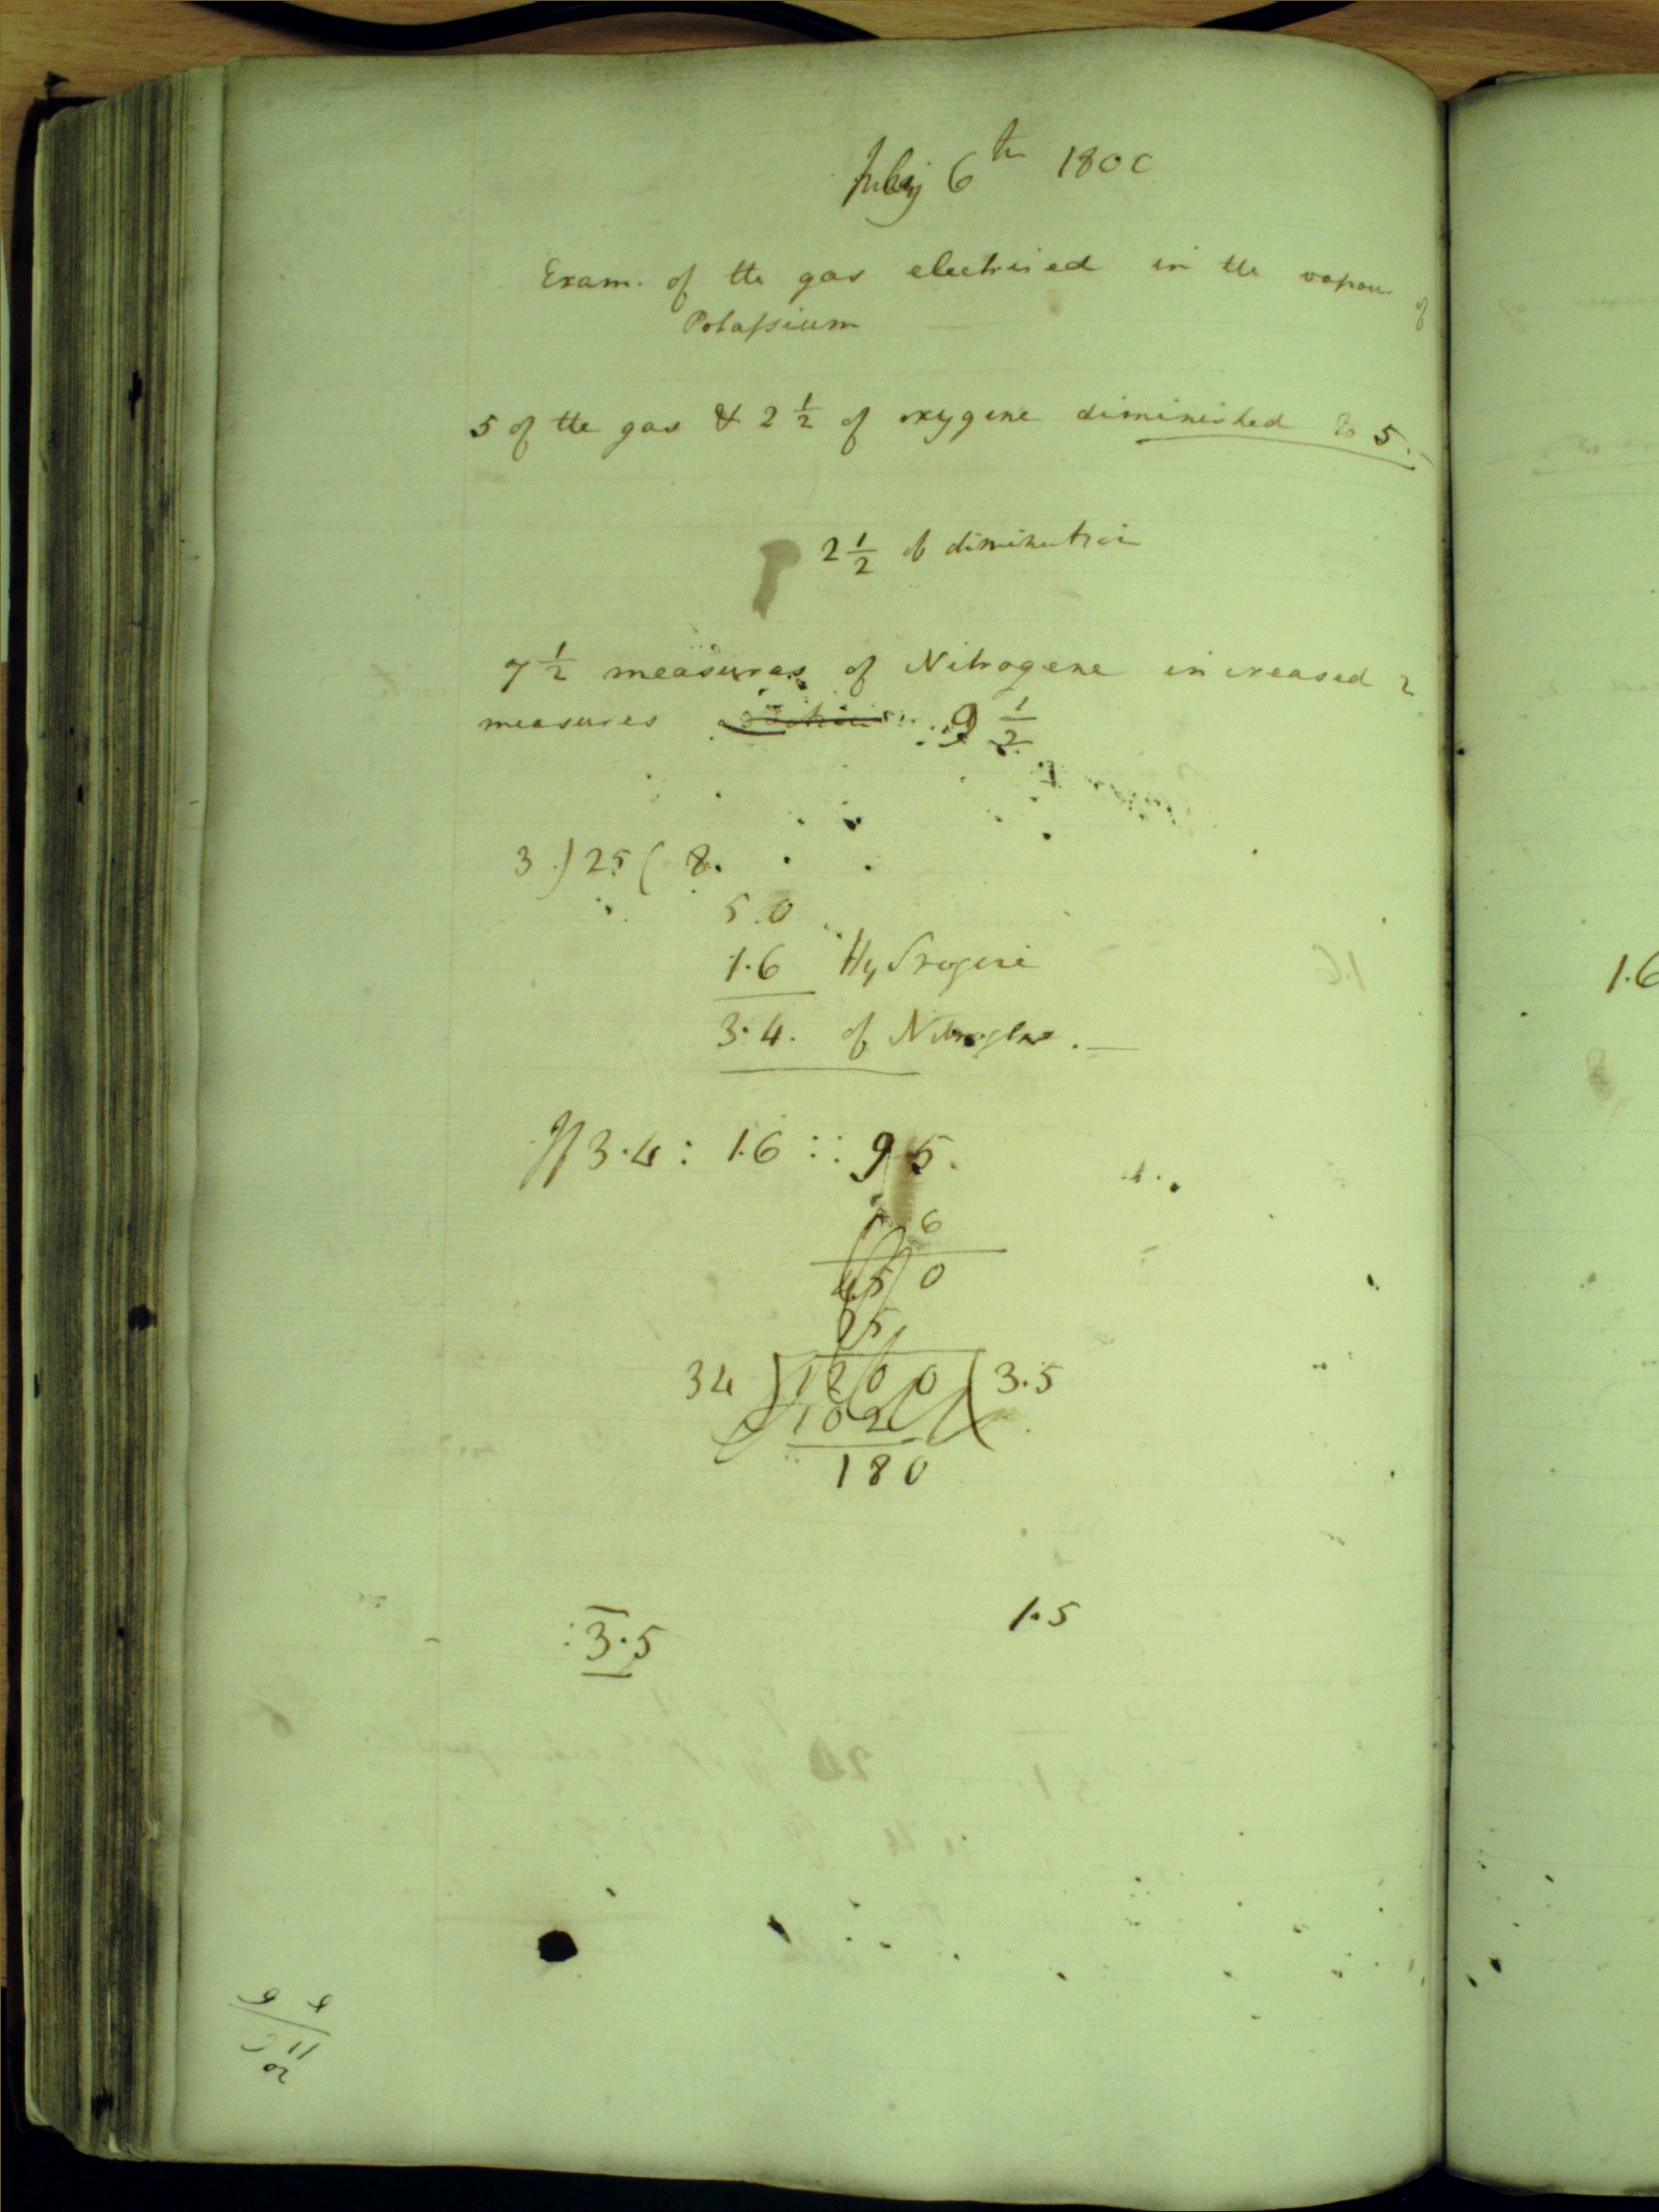 July 6th 180
Exam. of the gas electrised in the vapour of
Potassium
5 of the gas & 2 1/2 of oxygene diminished to 5.-
2 1/2 of diminution
7 1/2 measures of Nitrogene increased 2
measures 9 1/2
3.) 25 ( 8.
5.0
1.6 Hydrogene
3.4. of Nitrogene.-
If 3.4 : 1.6 :: 9.5.
6
45 0
25
34 ) 1200 ( 3.5
102
180
1.5
3.5
1.6